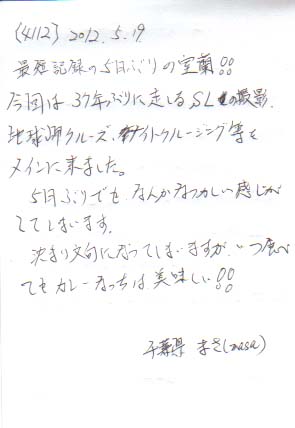 〈4112〉 2012.5.19
最短記録の5日ぶりの室蘭!!
今回は37年ぶりに走るSLの撮影、
地球岬クルーズ、ナイトクルージング等を
メインに来ました。
5日ぶりでも なんかなつかしい感じが
してしまいます。
決まり文句になってしまいますが、いつ食べ
てもカレーなっちは美味しい!!
千葉県 まさ(masa)